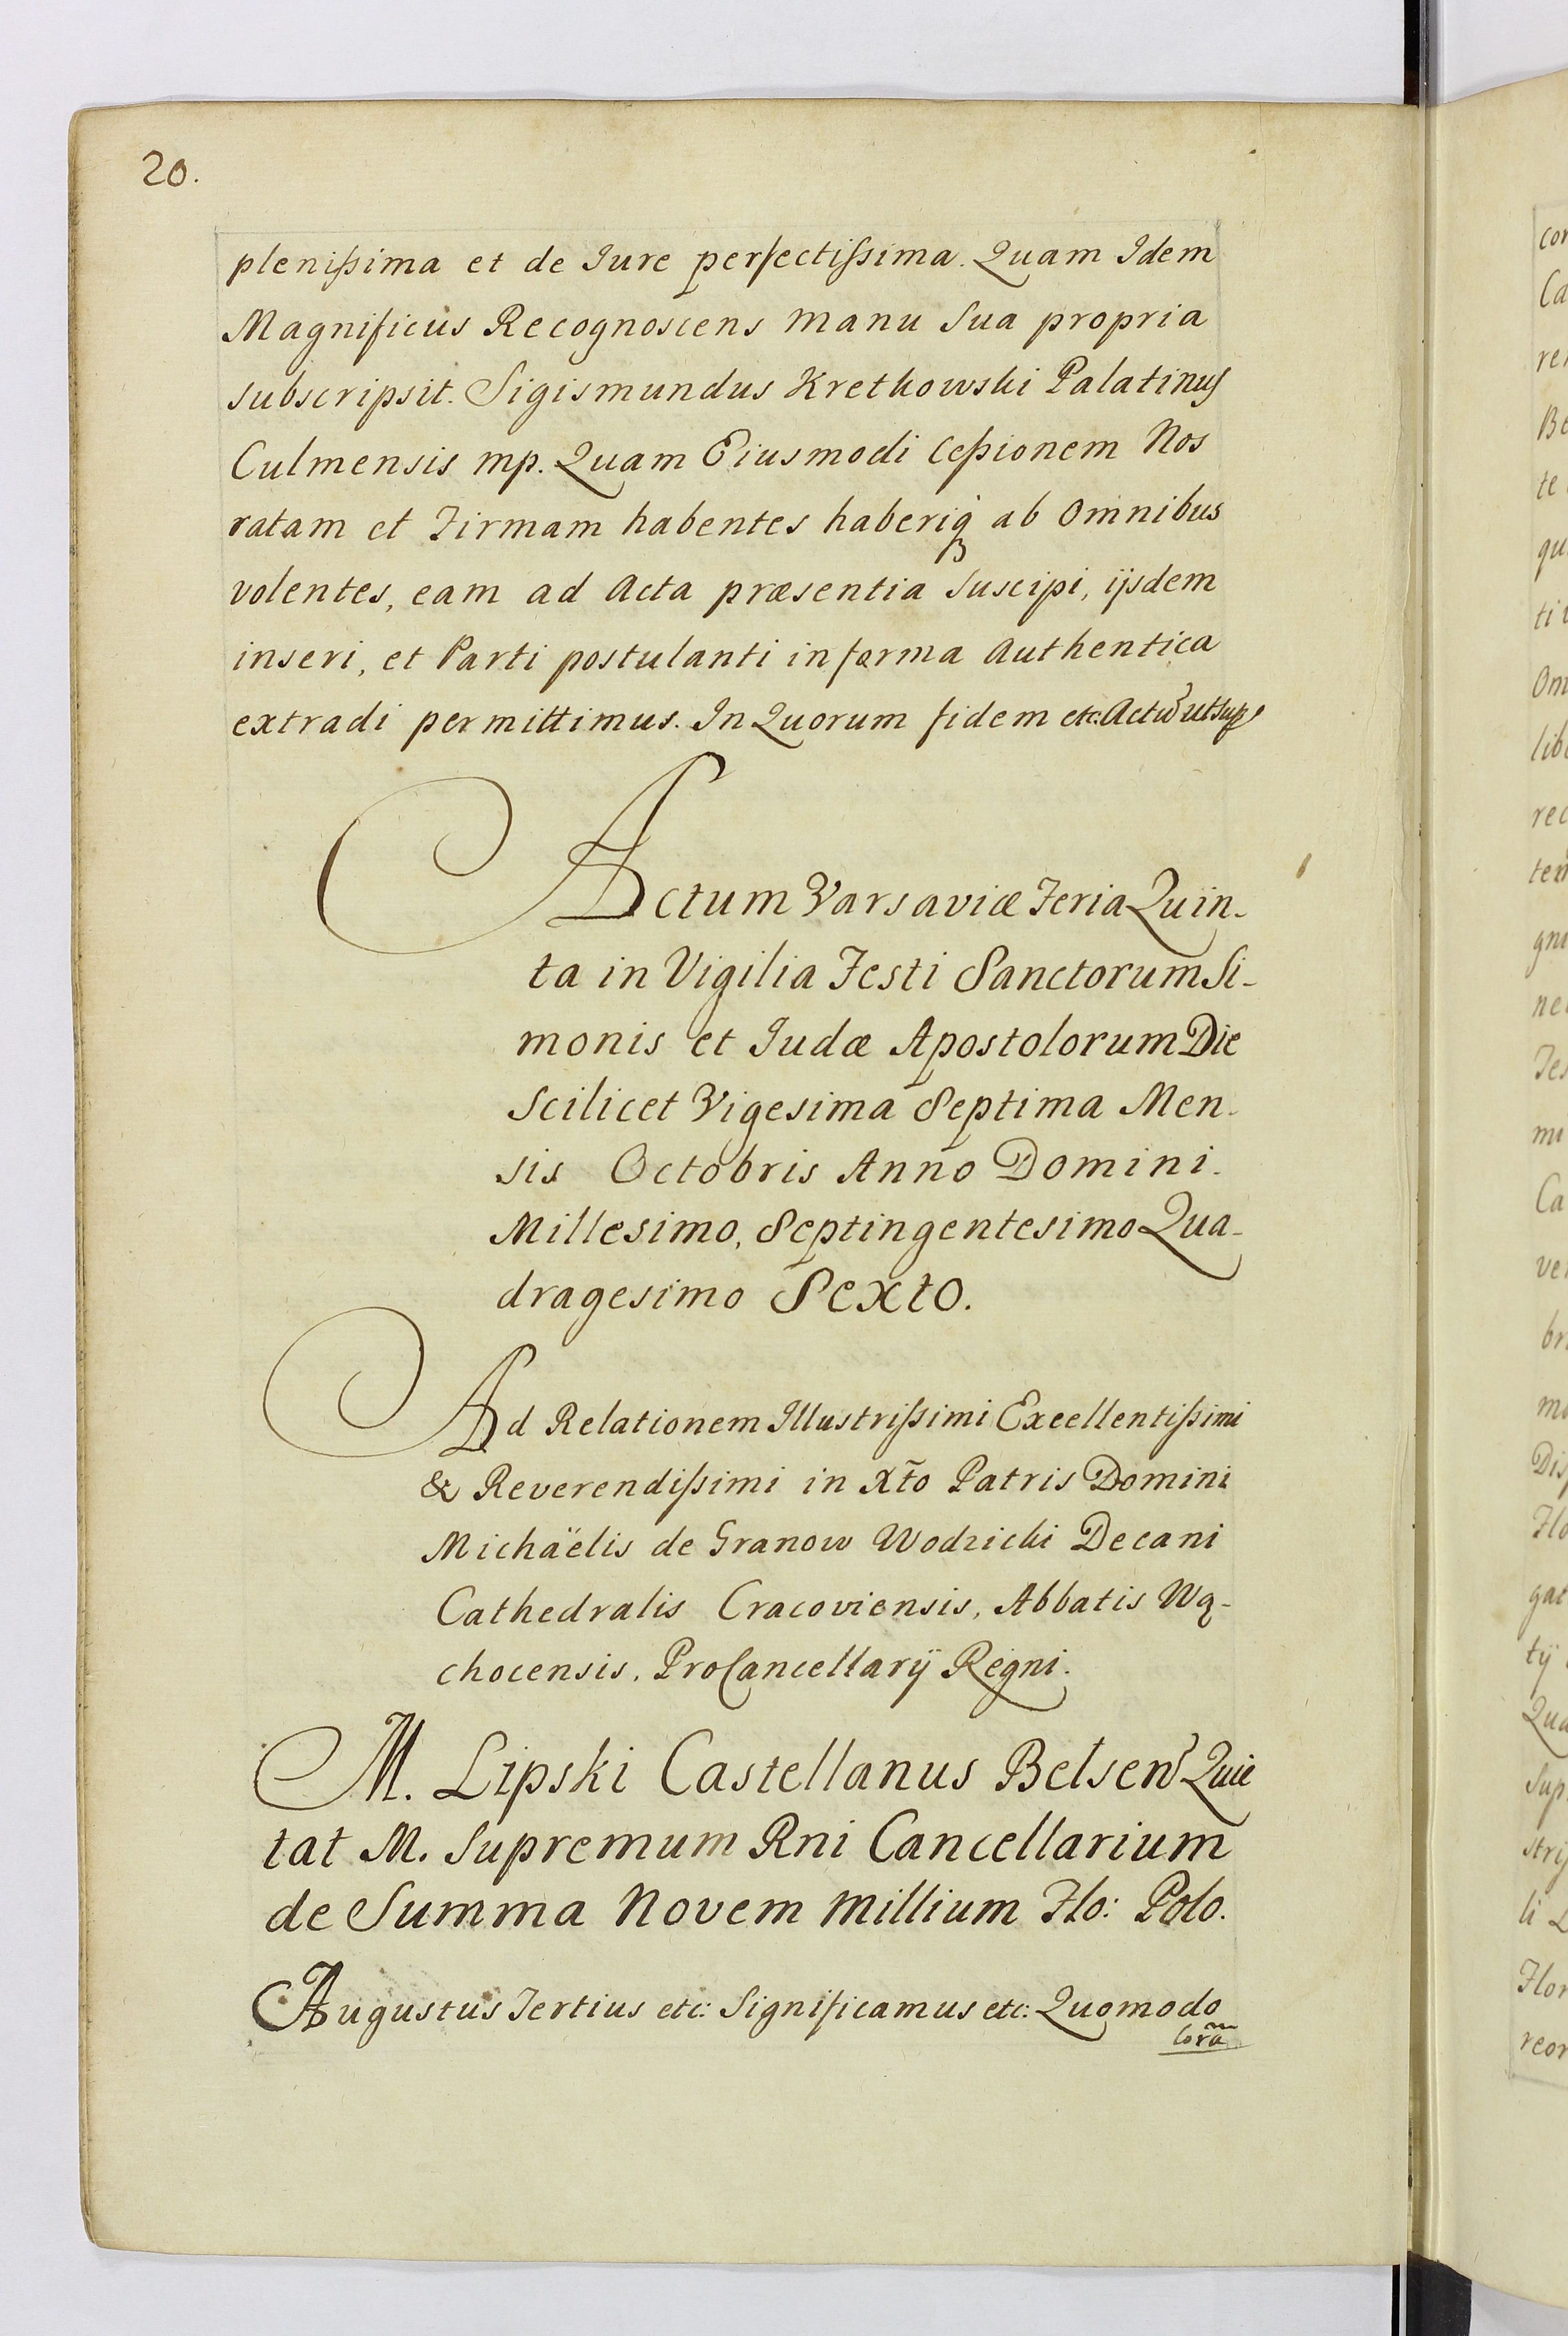 20.
plenissima et de Iure perfectissima. Quam Idem
Magnificus Recognoscens manu Sua propria
subscripsit. Sigismundus Kretkowski Palatinus
Culmensis mp. Quam Eiusmodi Cessionem Nos
ratam et Firmam habentes haberiq3 ab Omnibus
volentes, eam ad Acta præsentia Suscipi, ijsdem
inseri, et Parti postulanti in forma Authentica
extradi permittimus. In Quorum fidem etc. Actũ ut sup
Actum Varsaviæ Feria Quin-
ta in Vigilia Festi Sanctorum Si-
monis et Iudæ Apostolorum Die
Scilicet Vigesima Septima Men-
sis Octobris Anno Domini.
Millesimo, Septingentesimo Qua-
dragesimo Sexto.
Ad Relationem Illustrissimi Excellentissimi
& Reverendissimi in Xt̃o Patris Domini
Michäelis de Granow Wodzicki Decani
Cathedralis Cracoviensis, Abbatis Wą-
chocensis, ProCancellarÿ Regni.
M. Lipski Castellanus Belsen Quie
tat M. Supremum Rni Cancellarium
de Summa Novem Millium Flo: Polo.
Augustus Tertius etc: Significamus etc: Quomodo
Corã